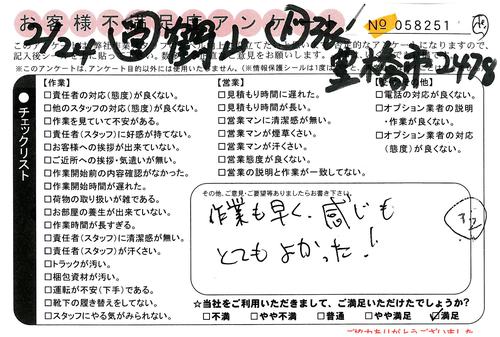 お客様不満足度アンケ
No 058251
2/24
豊橋市
2478
このアンケートは
記入後シール
※このアンケートは、アンケート目的以外には使用いたしません。
チェックリスト
【作業】
□責任者の対応(態度)が良くない。
□他のスタッフの対応(態度)が良くない。
□作業を見ていて不安がある。
□責任者(スタッフ)に好感が持てない。
□お客様への挨拶が出来ていない。
□ご近所への挨拶・気遣いが無い。
□作業開始前の内容確認がなかった。
□作業開始時間が遅れた。
□荷物の取り扱いが雑である。
□お部屋の養生が出来ていない。
□作業時間が長すぎる。
□責任者(スタッフ)に清潔感が無い。
□責任者(スタッフ)が汗くさい。
□トラックが汚い。
□梱包資材が汚い。
□運転が不安(下手)である。
□靴下の履き替えをしてない。
□スタッフにやる気がみられない。
【営業】
□見積もり時間に遅れた。
□見積もり時間が長い。
□営業マンに清潔感が無い。
□営業マンが煙草くさい。
□営業マンが汗くさい。
□営業態度が良くない。
□営業の説明と作業が一致してない。
の他】
□電話の対応が良くない。
□オプション業者の説明
・作業が良くない。
□オプション業者の対応
(態度)が良くない。
その他、ご意見・ご要望等ありましたらお書き下さい。
作業も早く、感じも
とてもよかった!
☆当社をご利用いただきまして、ご満足いただけたでしょうか?
□不満 □やや不満 □普通 □やや満足 ☑満足
ご協力ありがとうございました